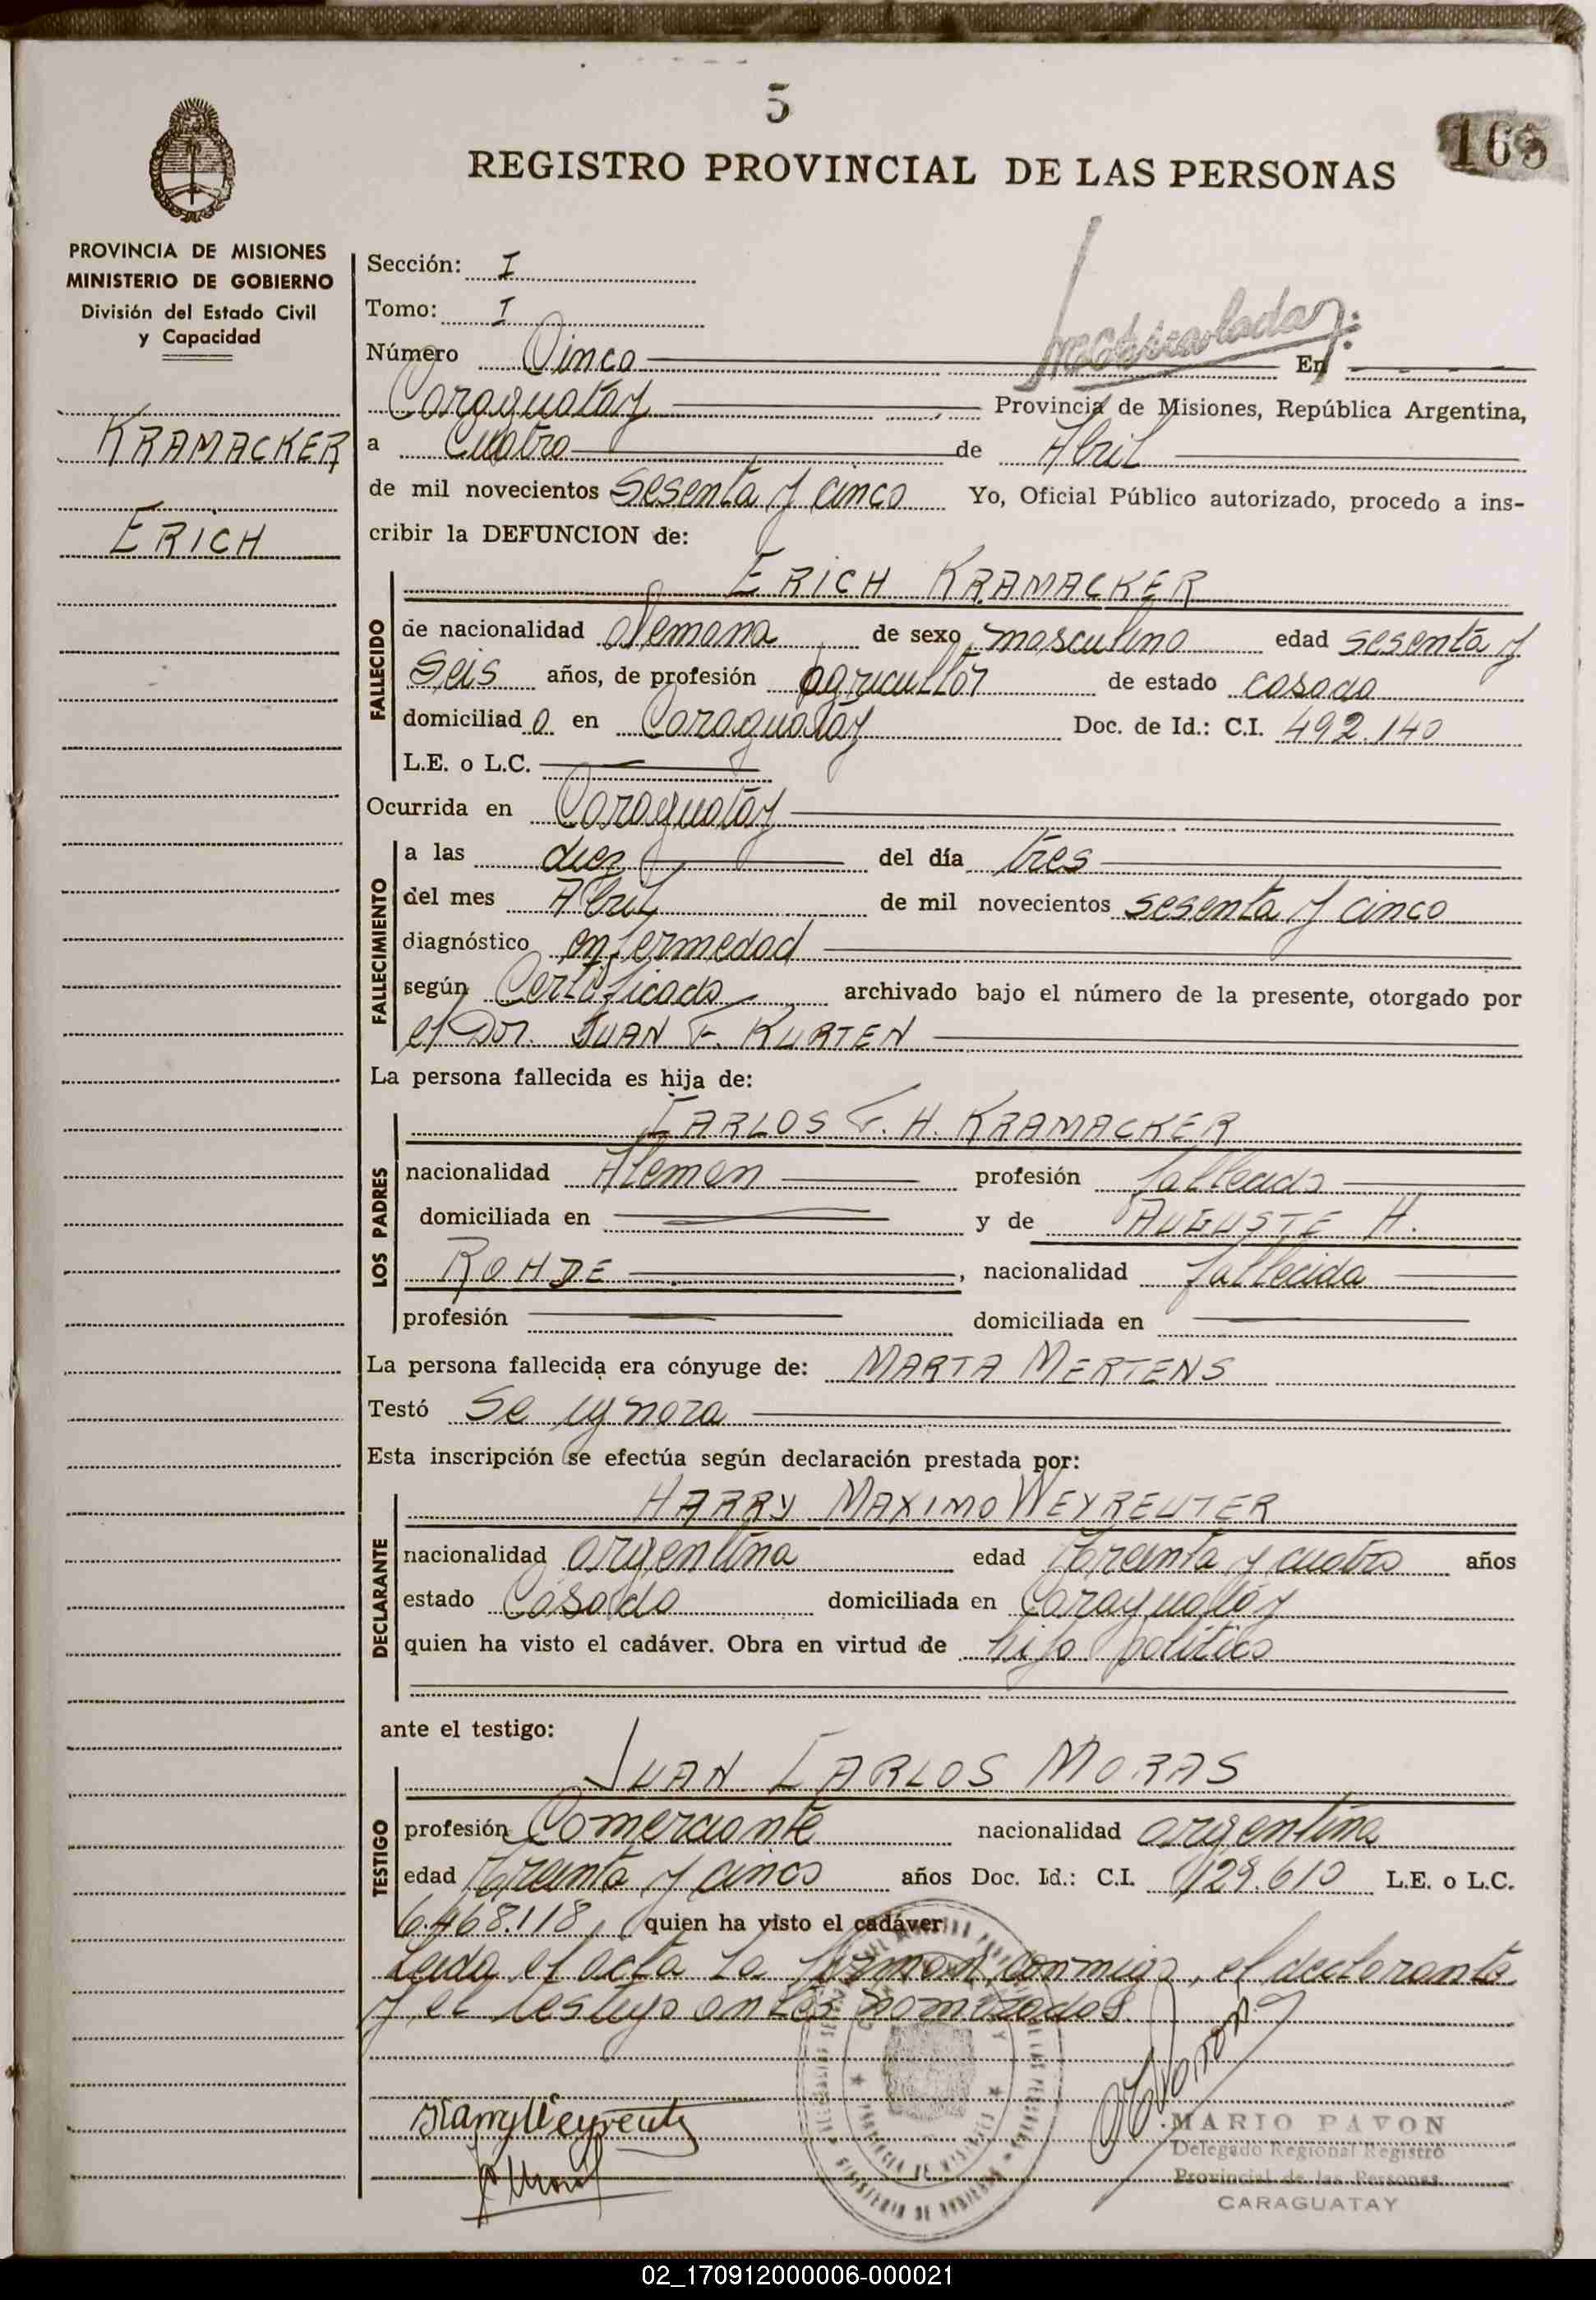 5
165
REGISTRO PROVINCIAL DE LAS PERSONAS
PROVINCIA DE MISIONES
MINISTERIO DE GOBIERNO
División del Estado Civil
y Capacidad
KRAMACKER
ERICH
Sección: I
Tomo: I
Número Cinco En
Caraguatáy Provincia de Misiones, República Argentina,
a Cuatro de Abril
de mil novecientos Sesenta y cinco Yo, Oficial Público autorizado, procedo a ins-
cribir la DEFUNCION de:
ERICH KRAMACKER
FALLECIDO
de nacionalidad alemana de sexo masculino edad sesenta y
Seis años, de profesión agricultor de estado casado
domiciliad o en Caraguatáy Doc. de Id.: C.I. 492.140
L.E. o L.C.
Ocurrida en Caraguatáy
FALLECIMIENTO
a las diez del día tres
del mes Abril de mil novecientos sesenta y cinco
diagnóstico enfermedad
según Certificado archivado bajo el número de la presente, otorgado por
el Dor. JUAN F. KURTEN
La persona fallecida es hija de:
LOS PADRES
CARLOS F. H. KRAMACKER
nacionalidad Aleman profesión fallecido
domiciliada en y de AUGUSTE H.
ROHDE, nacionalidad fallecida
profesión domiciliada en
La persona fallecida era cónyuge de: MARTA MERTENS
Testó Se ignora
Esta inscripción se efectúa según declaración prestada por:
DECLARANTE
HARRY MAXIMO WEYREUTER
nacionalidad argentina edad treinta y cuatro años
estado Casado domiciliada en Caraguatáy
quien ha visto el cadáver. Obra en virtud de hijo politico
ante el testigo:
TESTIGO
JUAN CARLOS MORAS
profesión Comerciante nacionalidad argentina
edad treinta y cinco años Doc. Id.: C.I. 129.610 L.E. o L.C.
6.468.118, quien ha visto el cadáver
Leida el acta la firman conmigo, el declarante
y el testigo antes nomizados.
Harry Weyreuter
MARIO PAVON
Delegado Regional Registro
Provincial de las Personas
CARAGUATAY
02_170912000006-000021